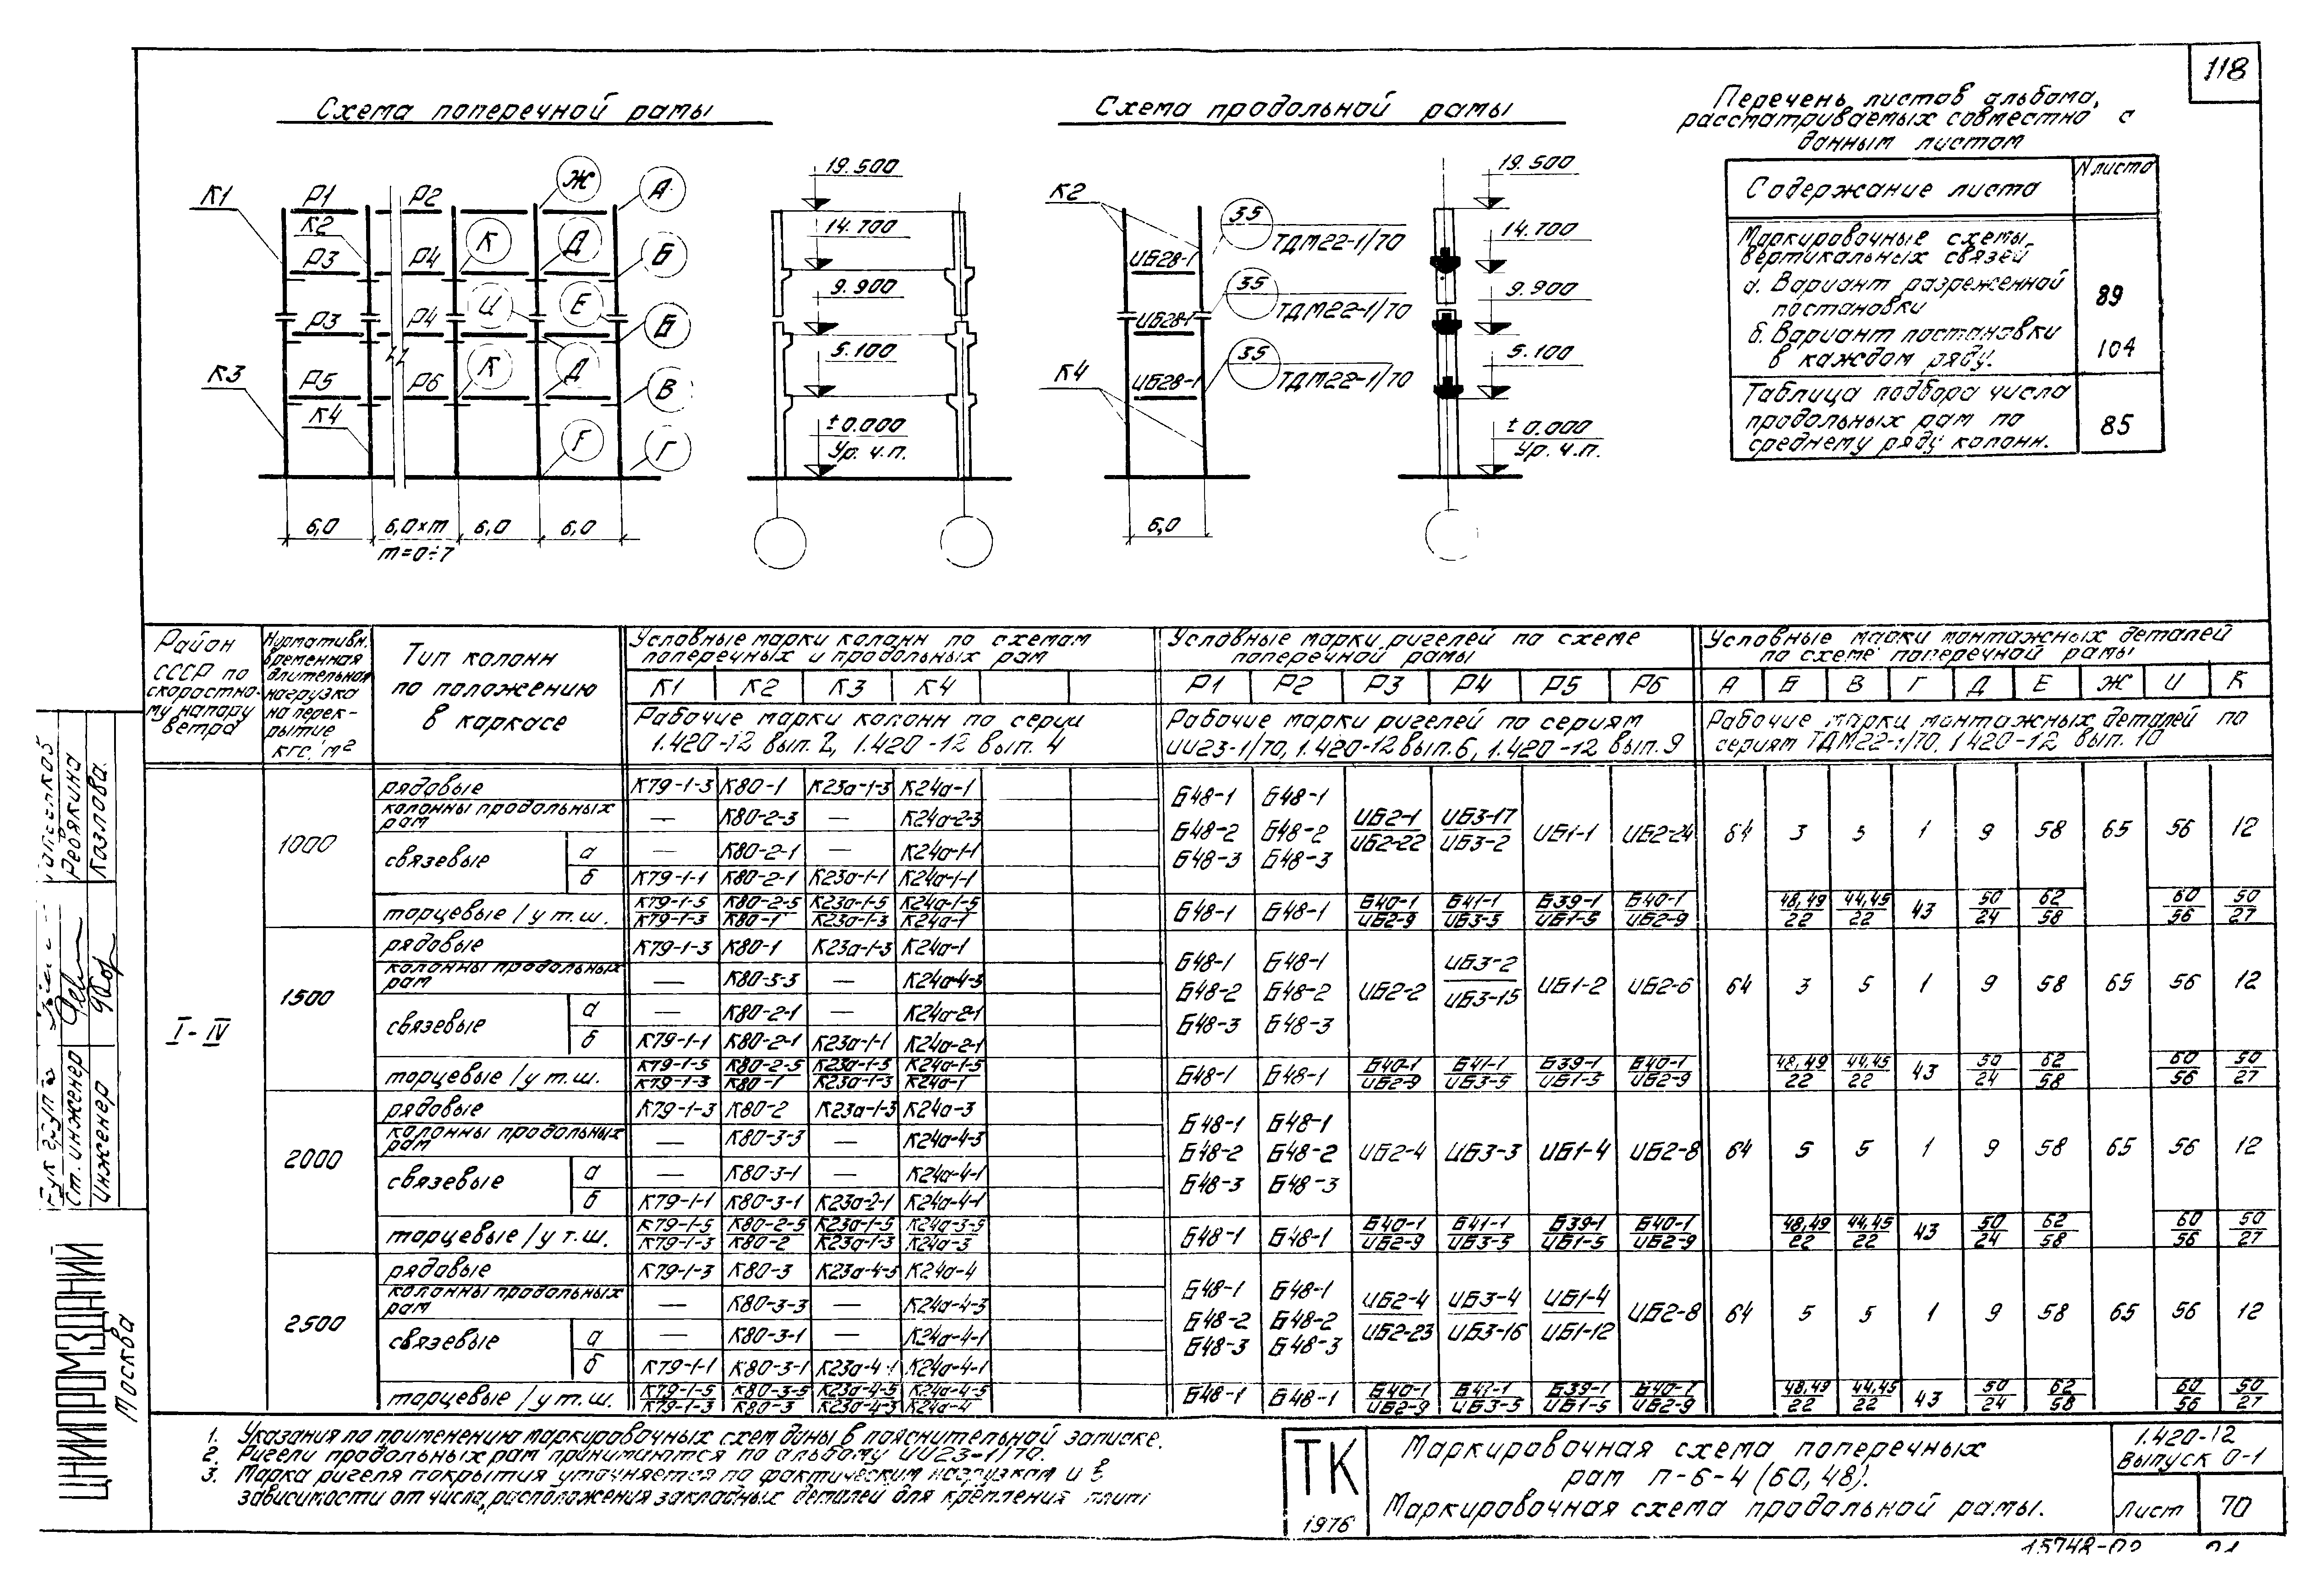 118
Схема поперечной рамы
К1 Р1 Р2 Ж А
К2
Р3 Р4 К Д Б
Р3 Р4 И Е Б
К3 Р5 Р6 К Д В
К4
Г Г
6,0 6,0×m 6,0 6,0
m=0÷7
19.500
14.700
9.900
5.100
±0.000
Ур. ч.п.
Схема продольной рамы
К2 35
ИБ28-1 ТДМ22-1/70
35
ИБ28-1 ТДМ22-1/70
К4 35
ИБ28-1 ТДМ22-1/70
6,0
19.500
14.700
9.900
5.100
±0.000
Ур. ч.п.
Перечень листов альбома,
рассматриваемых совместно с
данным листом
Содержание листа N листа
Маркировочные схемы
вертикальных связей
а. Вариант разреженной
постановки 89
б. Вариант постановки
в каждом ряду. 104
Таблица подбора числа
продольных рам по
среднему ряду колонн. 85
Район
СССР по
скоростно-
му напору
ветра
Нормативн.
временная
длительная
нагрузка
на перек-
рытие
кгс/м²
Тип колонн
по положению
в каркасе
Условные марки колонн по схемам
поперечных и продольных рам
К1 К2 К3 К4
Рабочие марки колонн по серии
1.420-12 вып. 2, 1.420-12 вып. 4
Условные марки ригелей по схеме
поперечной рамы
Р1 Р2 Р3 Р4 Р5 Р6
Рабочие марки ригелей по сериям
ИИ23-1/70, 1.420-12 вып. 6, 1.420-12 вып. 9
Условные марки монтажных деталей
по схеме поперечной рамы
А Б В Г Д Е Ж И К
Рабочие марки монтажных деталей по
сериям ТДМ22-1/70, 1.420-12 вып. 10
I-IV
1000
рядовые К79-1-3 К80-1 К23а-1-3 К24а-1
колонны продольных
рам — К80-2-3 — К24а-2-3
связевые а — К80-2-1 — К24а-1-1
б К79-1-1 К80-2-1 К23а-1-1 К24а-1-1
Б48-1 Б48-1
Б48-2 Б48-2
Б48-3 Б48-3
ИБ2-1 ИБ3-17
ИБ2-22 ИБ3-2
ИБ1-1 ИБ2-24
64 3 5 1 9 58 65 56 12
торцевые / у т.ш.
К79-1-5 К80-2-5 К23а-1-5 К24а-1-5
К79-1-3 К80-1 К23а-1-3 К24а-1
Б48-1 Б48-1
Б40-1 Б41-1 Б39-1 Б40-1
ИБ2-9 ИБ3-5 ИБ1-5 ИБ2-9
48,49 44,45 43 50 62 60 50
22 22 24 58 56 27
1500
рядовые К79-1-3 К80-1 К23а-1-3 К24а-1
колонны продольных
рам — К80-3-3 — К24а-4-3
связевые а — К80-2-1 — К24а-2-1
б К79-1-1 К80-2-1 К23а-1-1 К24а-2-1
Б48-1 Б48-1
Б48-2 Б48-2
Б48-3 Б48-3
ИБ2-2
ИБ3-2
ИБ3-15
ИБ1-2 ИБ2-6
64 3 5 1 9 58 65 56 12
торцевые / у т.ш.
К79-1-5 К80-2-5 К23а-1-5 К24а-1-5
К79-1-3 К80-1 К23а-1-3 К24а-1
Б48-1 Б48-1
Б40-1 Б41-1 Б39-1 Б40-1
ИБ2-9 ИБ3-5 ИБ1-5 ИБ2-9
48,49 44,45 43 50 62 60 50
22 22 24 58 56 27
2000
рядовые К79-1-3 К80-2 К23а-1-3 К24а-3
колонны продольных
рам — К80-3-3 — К24а-4-3
связевые а — К80-3-1 — К24а-4-1
б К79-1-1 К80-3-1 К23а-2-1 К24а-4-1
Б48-1 Б48-1
Б48-2 Б48-2
Б48-3 Б48-3
ИБ2-4 ИБ3-3 ИБ1-4 ИБ2-8
64 5 5 1 9 58 65 56 12
торцевые / у т.ш.
К79-1-5 К80-2-5 К23а-1-5 К24а-3-5
К79-1-3 К80-2 К23а-1-3 К24а-3
Б48-1 Б48-1
Б40-1 Б41-1 Б39-1 Б40-1
ИБ2-9 ИБ3-5 ИБ1-5 ИБ2-9
48,49 44,45 43 50 62 60 50
22 22 24 58 56 27
2500
рядовые К79-1-3 К80-3 К23а-4-5 К24а-4
колонны продольных
рам — К80-3-3 — К24а-4-3
связевые а — К80-3-1 — К24а-4-1
б К79-1-1 К80-3-1 К23а-4-1 К24а-4-1
Б48-1 Б48-1
Б48-2 Б48-2
Б48-3 Б48-3
ИБ2-4 ИБ3-4 ИБ1-4
ИБ2-23 ИБ3-16 ИБ1-12
ИБ2-8
64 5 5 1 9 58 65 56 12
торцевые / у т.ш.
К79-1-5 К80-3-5 К23а-4-5 К24а-4-5
К79-1-3 К80-3 К23а-4-3 К24а-4
Б48-1 Б48-1
Б40-1 Б41-1 Б39-1 Б40-1
ИБ2-9 ИБ3-5 ИБ1-5 ИБ2-9
48,49 44,45 43 50 62 60 50
22 22 24 58 56 27
1. Указания по применению маркировочных схем даны в пояснительной записке.
2. Ригели продольных рам принимаются по альбому ИИ23-1/70.
3. Марка ригеля покрытия уточняется по фактическим нагрузкам и в
зависимости от числа, расположения закладных деталей для крепления плит
ТК
1976
Маркировочная схема поперечных
рам п-6-4 (60, 48).
Маркировочная схема продольной рамы.
1.420-12
Выпуск 0-1
Лист 70
15748-02
Ст. инженер Ревякина
Инженер Казлова
ЦНИИПРОМЗДАНИЙ
Москва